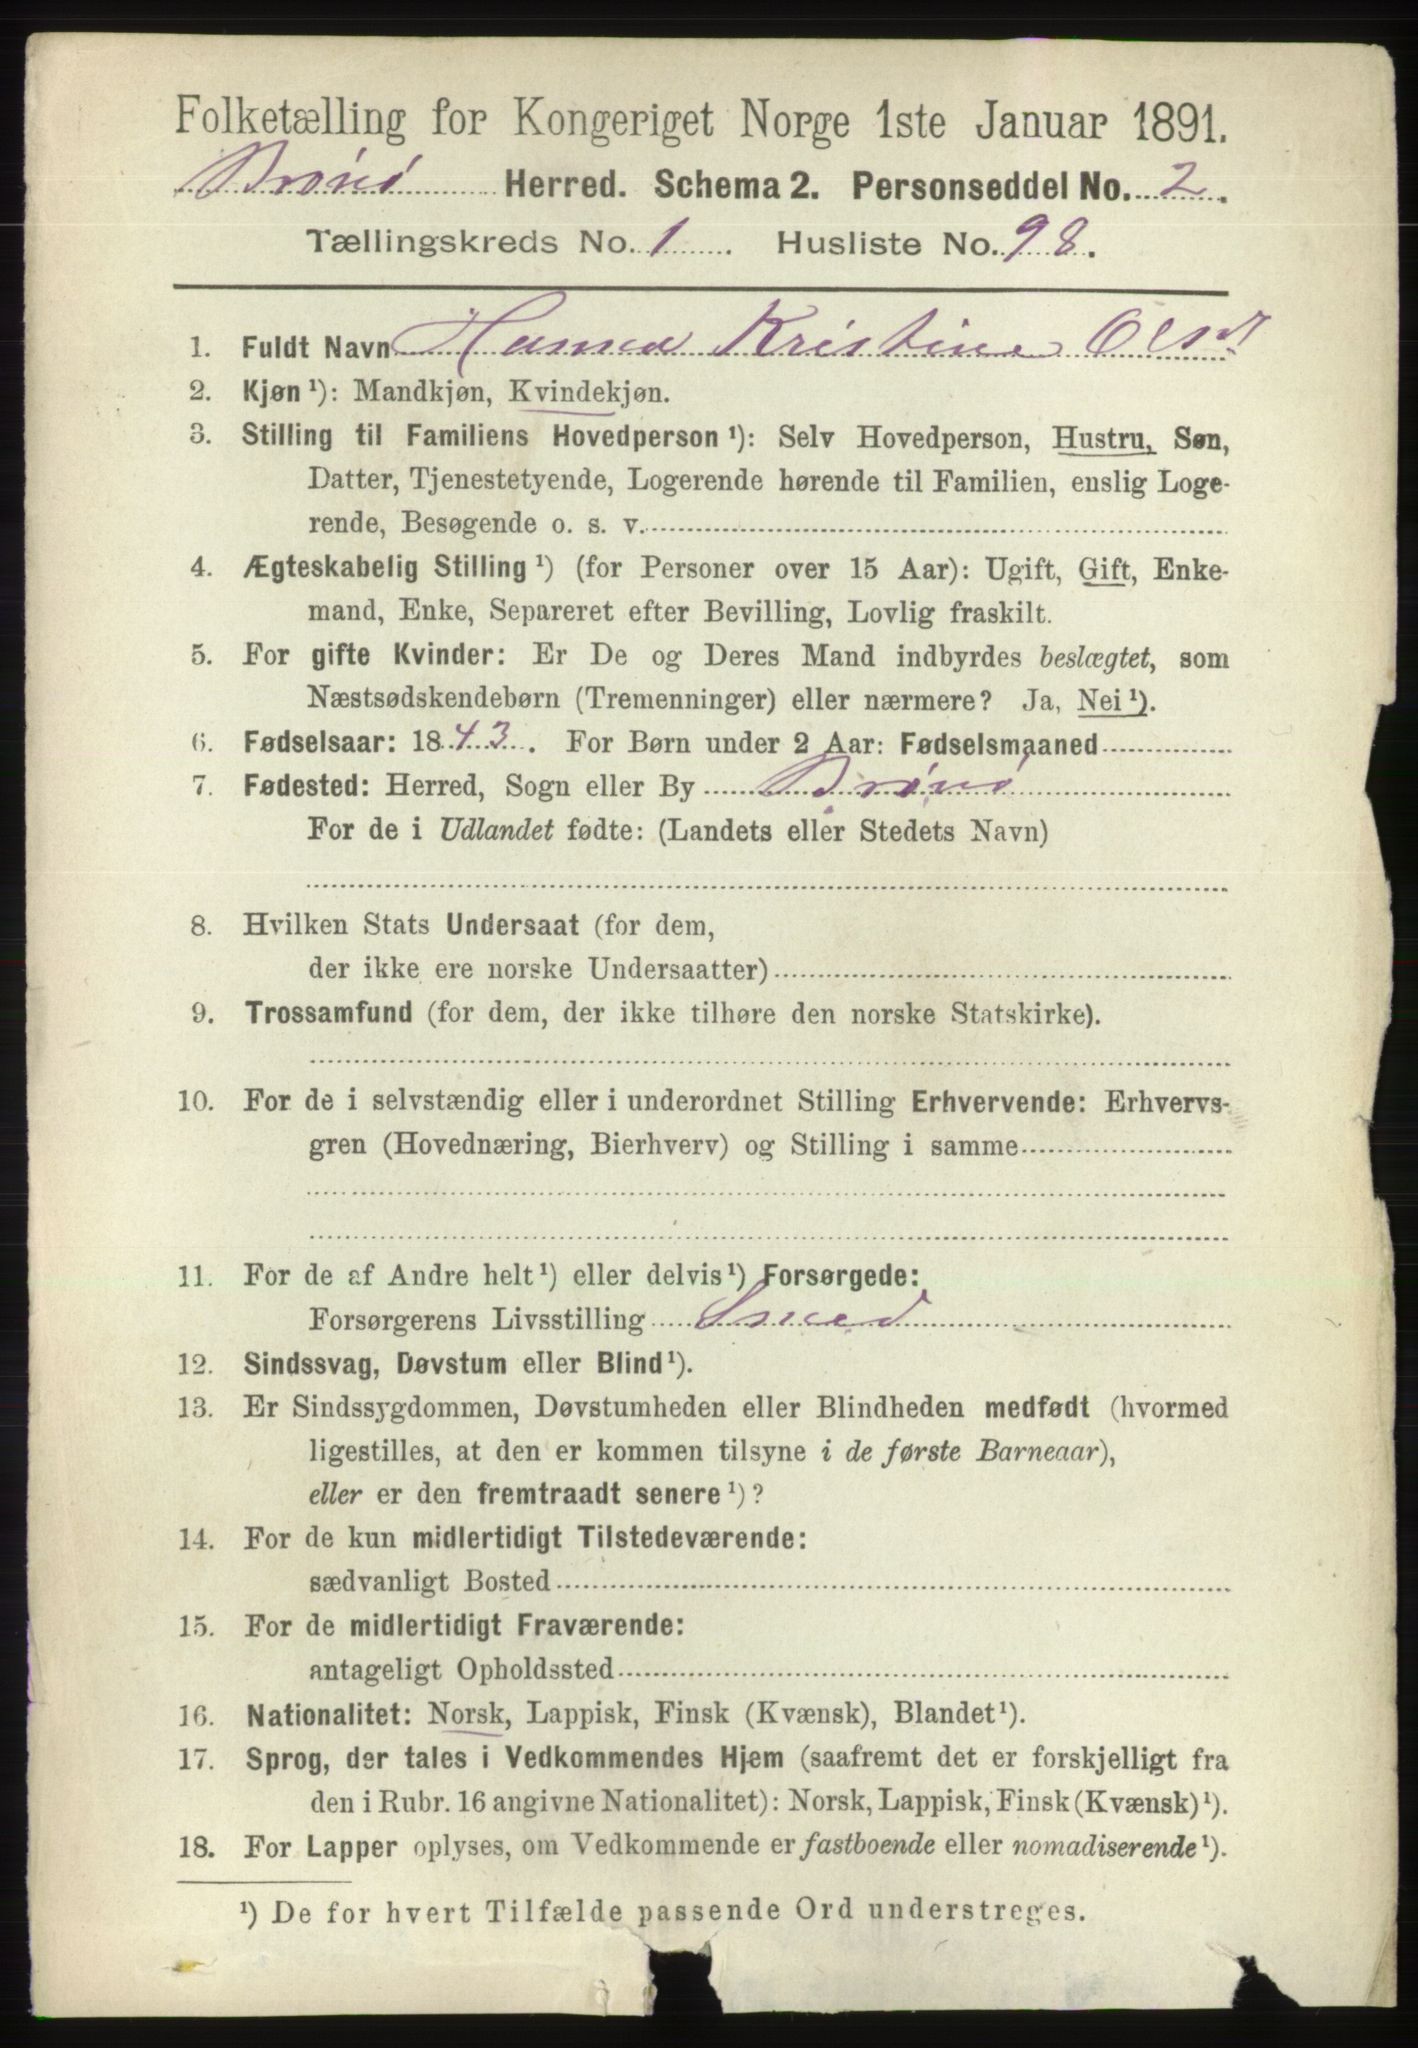 Folketælling for Kongeriget Norge 1ste Januar 1891.
Brønø Herred. Schema 2. Personseddel No. 2.
Tællingskreds No. 1. Husliste No. 98.
1. Fuldt Navn Hanna Kristine Olsdt
2. Kjøn ¹): Mandkjøn, Kvindekjøn.
3. Stilling til Familiens Hovedperson ¹): Selv Hovedperson, Hustru, Søn,
Datter, Tjenestetyende, Logerende hørende til Familien, enslig Loge-
rende, Besøgende o. s. v.
4. Ægteskabelig Stilling ¹) (for Personer over 15 Aar): Ugift, Gift, Enke-
mand, Enke, Separeret efter Bevilling, Lovlig fraskilt.
5. For gifte Kvinder: Er De og Deres Mand indbyrdes beslægtet, som
Næstsødskendebørn (Tremenninger) eller nærmere? Ja, Nei ¹).
6. Fødselsaar: 1843. For Børn under 2 Aar: Fødselsmaaned
7. Fødested: Herred, Sogn eller By Brønø
For de i Udlandet fødte: (Landets eller Stedets Navn)
8. Hvilken Stats Undersaat (for dem,
der ikke ere norske Undersaatter)
9. Trossamfund (for dem, der ikke tilhøre den norske Statskirke).
10. For de i selvstændig eller i underordnet Stilling Erhvervende: Erhvervs-
gren (Hovednæring, Bierhverv) og Stilling i samme
11. For de af Andre helt ¹) eller delvis ¹) Forsørgede:
Forsørgerens Livsstilling Smed
12. Sindssvag, Døvstum eller Blind ¹).
13. Er Sindssygdommen, Døvstumheden eller Blindheden medfødt (hvormed
ligestilles, at den er kommen tilsyne i de første Barneaar),
eller er den fremtraadt senere ¹)?
14. For de kun midlertidigt Tilstedeværende:
sædvanligt Bosted
15. For de midlertidigt Fraværende:
antageligt Opholdssted
16. Nationalitet: Norsk, Lappisk, Finsk (Kvænsk), Blandet ¹).
17. Sprog, der tales i Vedkommendes Hjem (saafremt det er forskjelligt fra
den i Rubr. 16 angivne Nationalitet): Norsk, Lappisk, Finsk (Kvænsk) ¹).
18. For Lapper oplyses, om Vedkommende er fastboende eller nomadiserende ¹).
¹) De for hvert Tilfælde passende Ord understreges.